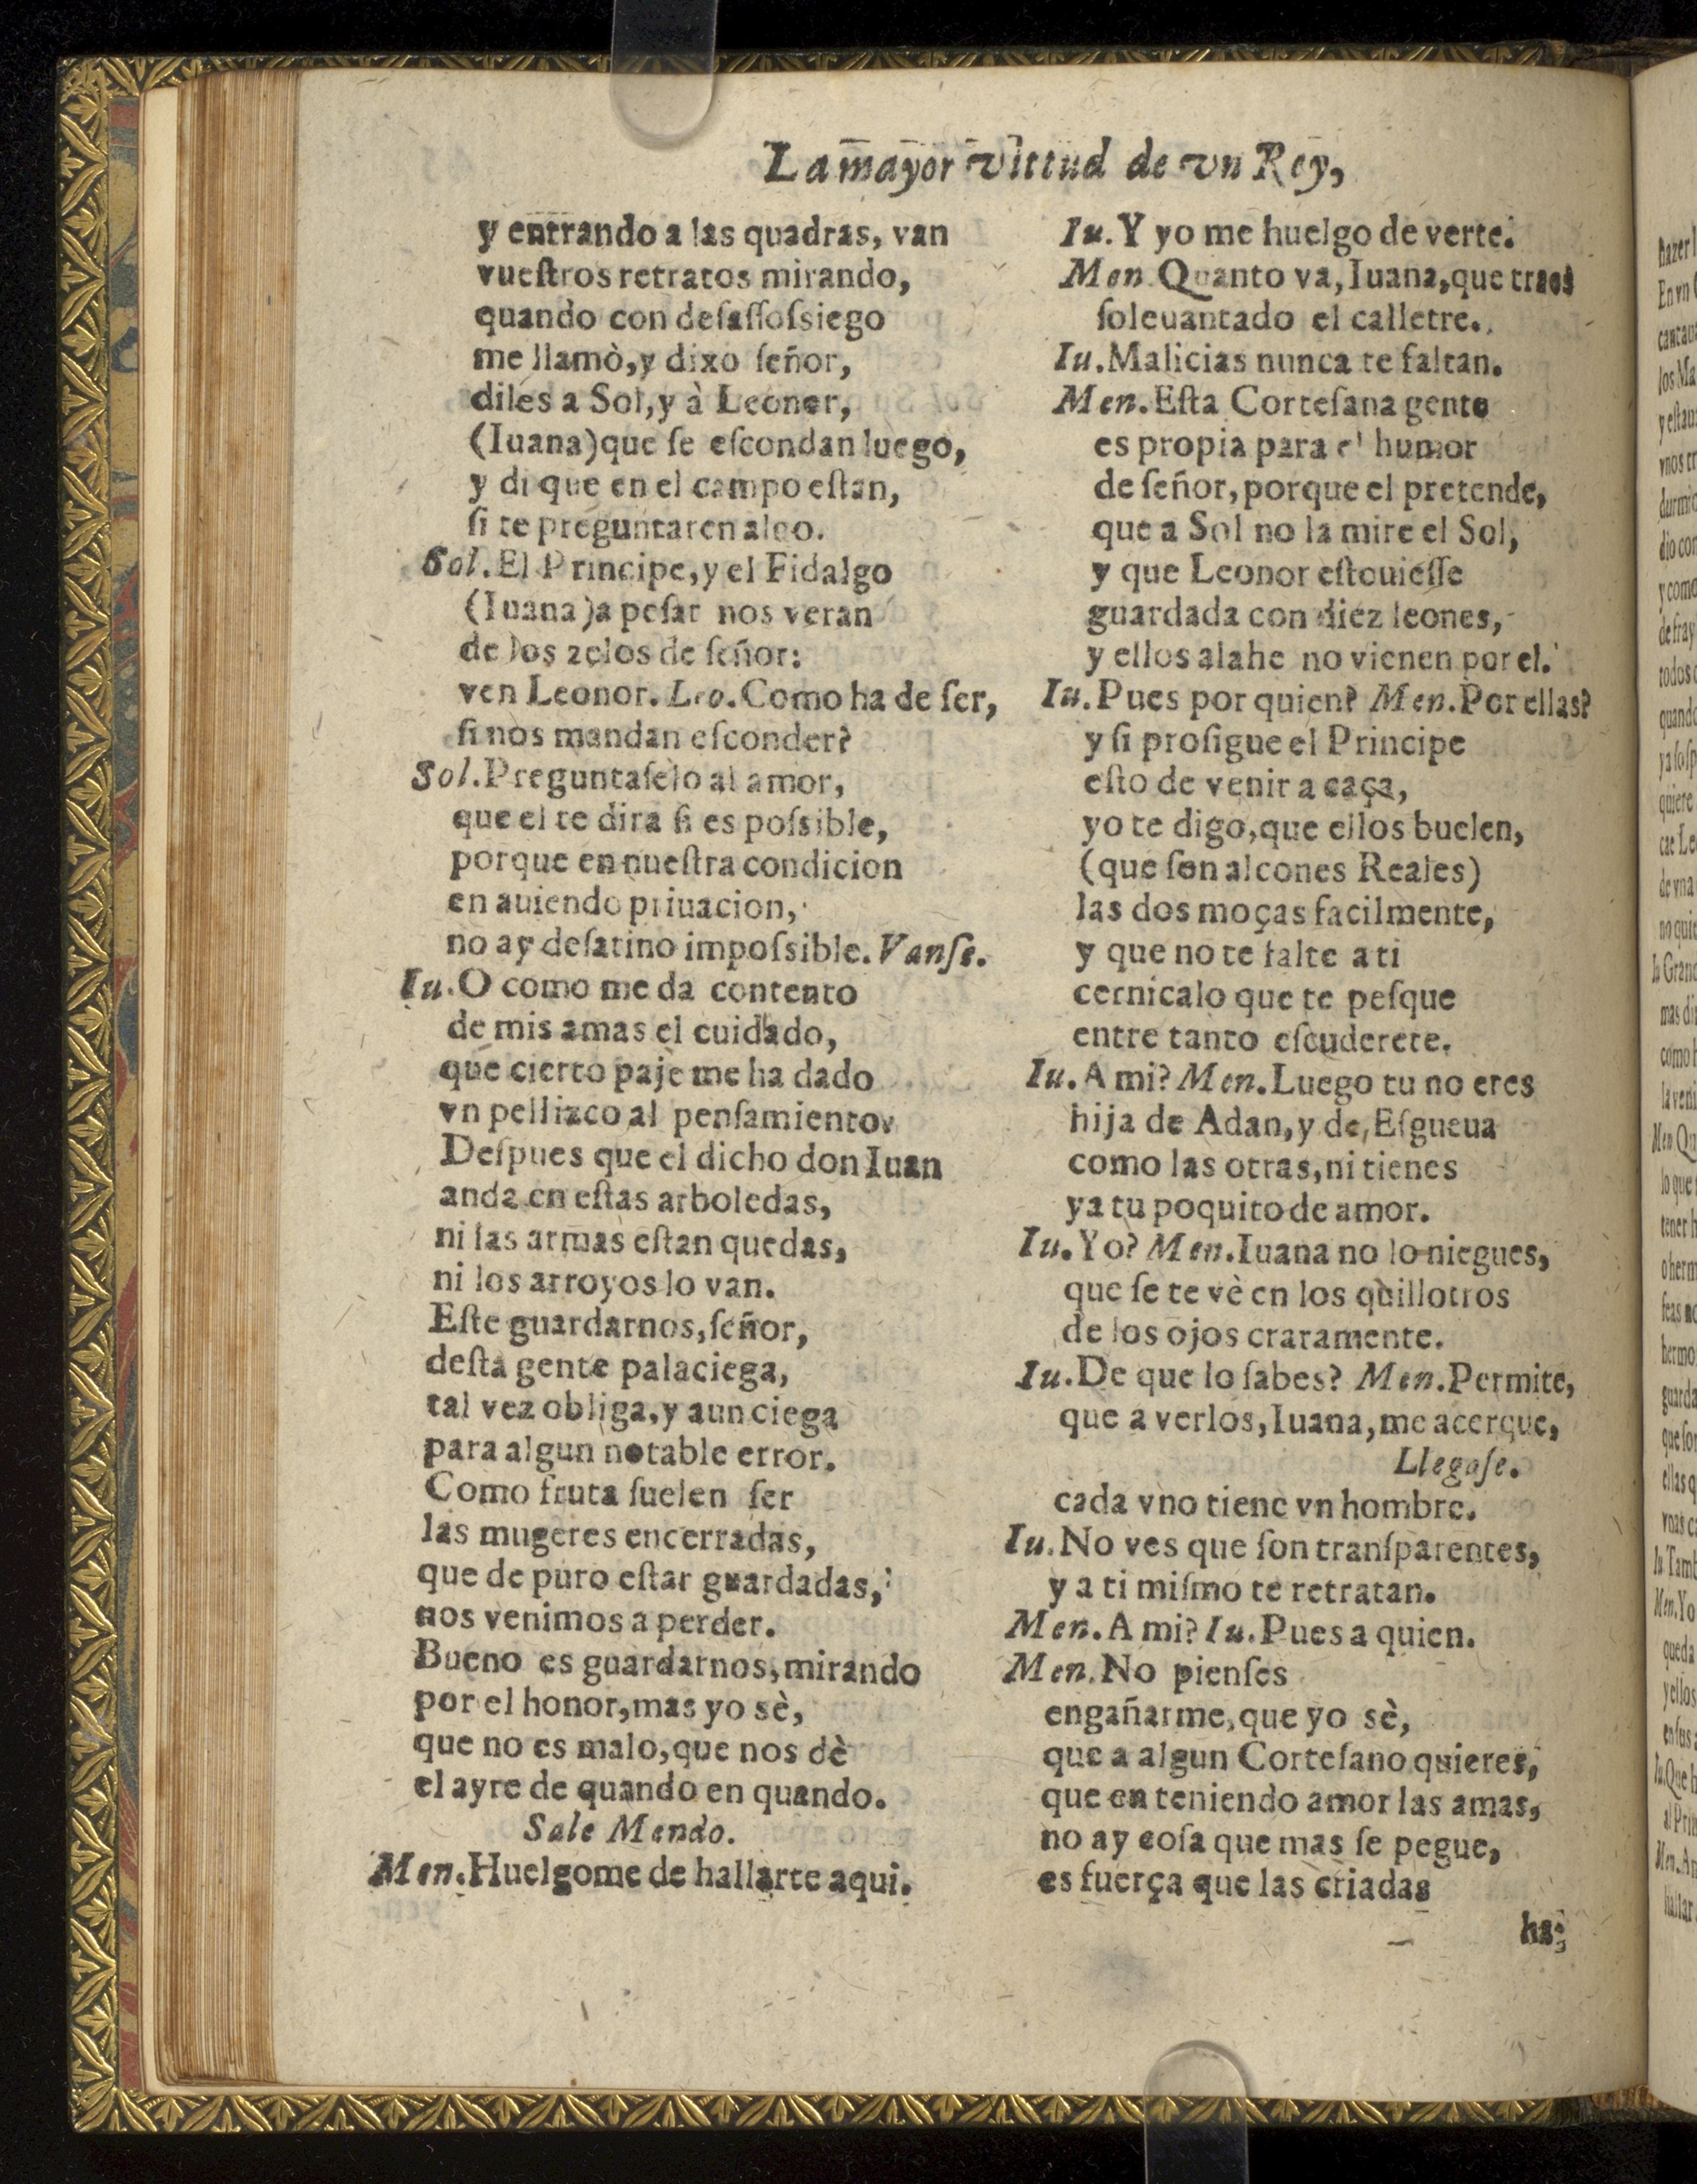 La mayor vittud de vn Rey,
y entrando a las quadras, van
vueſtros retratos mirando,
quando con deſaſſoſsiego
me llamò,y dixo ſeñor,
diles a Sol,y à Leonor,
(Iuana)que ſe eſcondan luego,
y di que en el campo eſtan,
ſi te preguntaren algo.
Sol.El Principe,y el Fidalgo
(Iuana)a peſar nos veran
de los zelos de ſeñor:
ven Leonor. Leo.Como ha de ſer,
ſi nos mandan eſconder?
Sol.Preguntaſelo al amor,
que el te dira ſi es poſsible,
porque en nueſtra condicion
en auiendo priuacion,
no ay deſatino impoſsible.Vanſe.
Iu.O como me da contento
de mis amas el cuidado,
que cierto paje me ha dado
vn pellizco al penſamiento.
Deſpues que el dicho don Iuan
anda en eſtas arboledas,
ni las armas eſtan quedas,
ni los arroyos lo van.
Eſte guardarnos,ſeñor,
deſta gente palaciega,
tal vez obliga,y aun ciega
para algun notable error.
Como fruta ſuelen ſer
las mugeres encerradas,
que de puro eſtar guardadas,
nos venimos a perder.
Bueno es guardarnos,mirando
por el honor,mas yo sè,
que no es malo,que nos dè
el ayre de quando en quando.
Sale Mendo.
Men.Huelgome de hallarte aqui.
Iu.Y yo me huelgo de verte.
Men.Quanto va,Iuana,que traes
ſoleuantado el calletre.
Iu.Malicias nunca te faltan.
Men.Eſta Corteſana gente
es propia para el humor
de ſeñor,porque el pretende,
que a Sol no la mire el Sol,
y que Leonor eſtouieſſe
guardada con diez leones,
y ellos alahe no vienen por el.
Iu.Pues por quien? Men.Por ellas?
y ſi proſigue el Principe
eſto de venir a caça,
yo te digo,que ellos buelen,
(que ſon alcones Reales)
las dos moças facilmente,
y que no te falte a ti
cernicalo que te peſque
entre tanto eſcuderete.
Iu.A mi? Men.Luego tu no eres
hija de Adan,y de Eſgueua
como las otras,ni tienes
ya tu poquito de amor.
Iu.Yo? Men.Iuana no lo niegues,
que ſe te vè en los quillotros
de los ojos craramente.
Iu.De que lo ſabes? Men.Permite,
que a verlos,Iuana,me acerque,
Llegaſe.
cada vno tiene vn hombre.
Iu.No ves que ſon tranſparentes,
y a ti miſmo te retratan.
Men.A mi? Iu.Pues a quien.
Men.No pienſes
engañarme,que yo sè,
que a algun Corteſano quieres,
que en teniendo amor las amas,
no ay coſa que mas ſe pegue,
es fuerça que las criadas
ha-